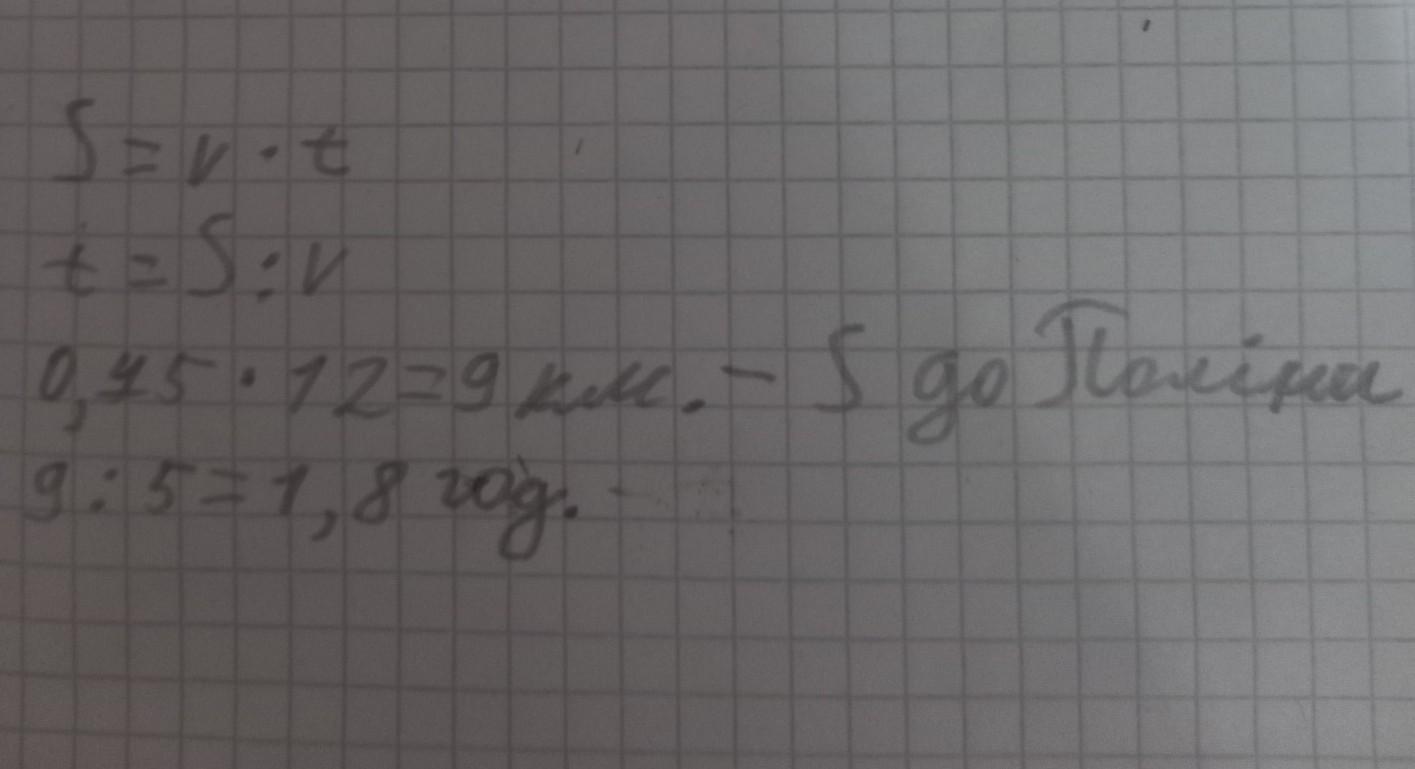 S = v · t
t = S : v
0,75 · 12 = 9 км. - S до Поліни
9 : 5 = 1,8 год. -